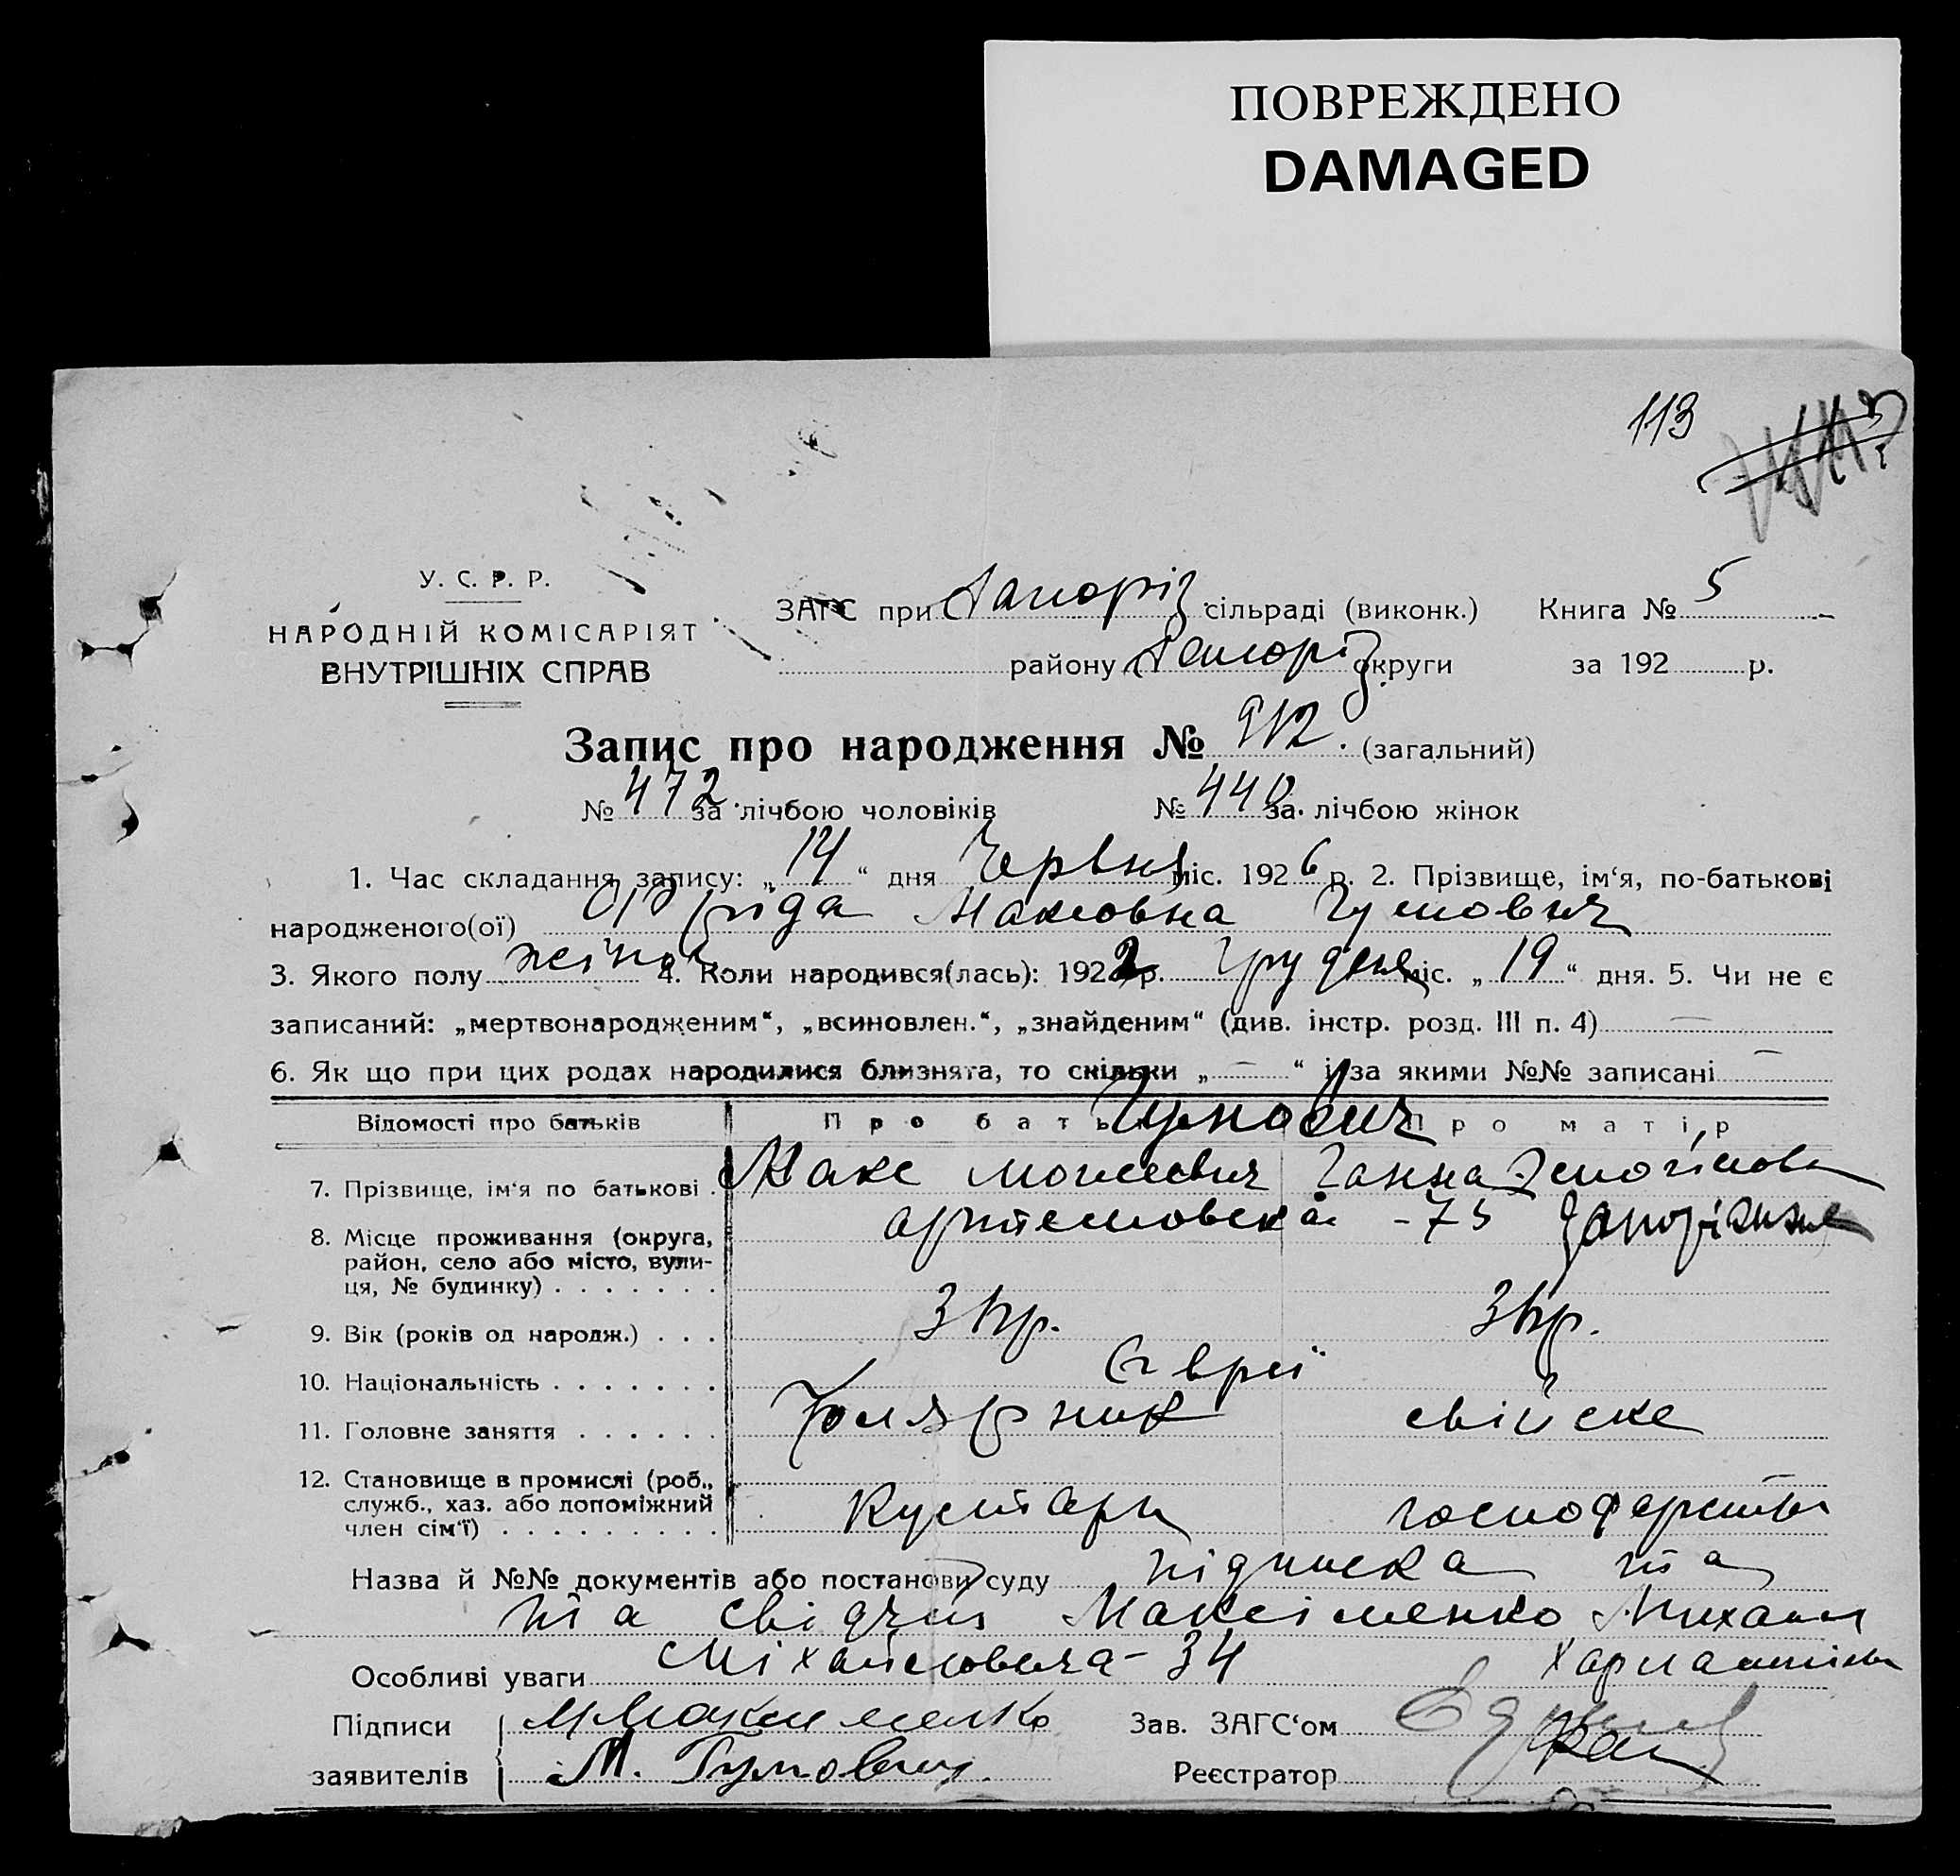 ПОВРЕЖДЕНО
DAMAGED
113
У. С. Р. Р.
НАРОДНІЙ КОМІСАРІЯТ
ВНУТРІШНІХ СПРАВ
ЗАГС при Запоріз. сільраді (виконк.) Книга № 5
району Запоріз. округи за 192 р.
Запис про народження № 912. (загальний)
№ 472. за лічбою чоловіків № 440 за лічбою жінок
1. Час складання запису: „ 14 “ дня Червня міс. 1926 р. 2. Прізвище, ім‘я, по-батькові
народженого(ої) Фріда Максовна Гумович
3. Якого полу жіноч. 4. Коли народився(лась): 1922 р. Грудня міс. „ 19 “ дня. 5. Чи не є
записаний: „мертвонародженим“, „всиновлен.“, „знайденим“ (див. інстр. розд. III п. 4) —
6. Як що при цих родах народилися близнята, то скільки „ — “ і за якими №№ записані —
Відомості про батьків Про батька Про матір
Гумович
7. Прізвище, ім‘я по батькові . Макс Моисеевич Ганна
8. Місце проживання (округа, район, село або місто, вули-
ця, № будинку) . . . . . . . Артемовска - 75 Запоріжжя
9. Вік (років од народж.) . . . 31 р. 31 р.
10. Національність . . . . . . . Євреї
11. Головне заняття . . . . . . свійске
12. Становище в промислі (роб.,
служб., хаз. або допоміжний
член сім‘ї) . . . . . . . . . Кустарь господарство
Назва й №№ документів або постанови суду підписка та
та свідчив Максіменко Михаил
Особливі уваги Міхайловича - 34
Підписи М Максименко Зав. ЗАГС‘ом
заявителів М. Гумович. Реєстратор